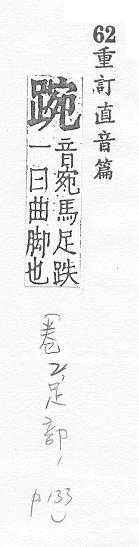 62重訂直音篇
踠音宛馬足跌
一曰曲脚也
(卷2,足部,
p133)